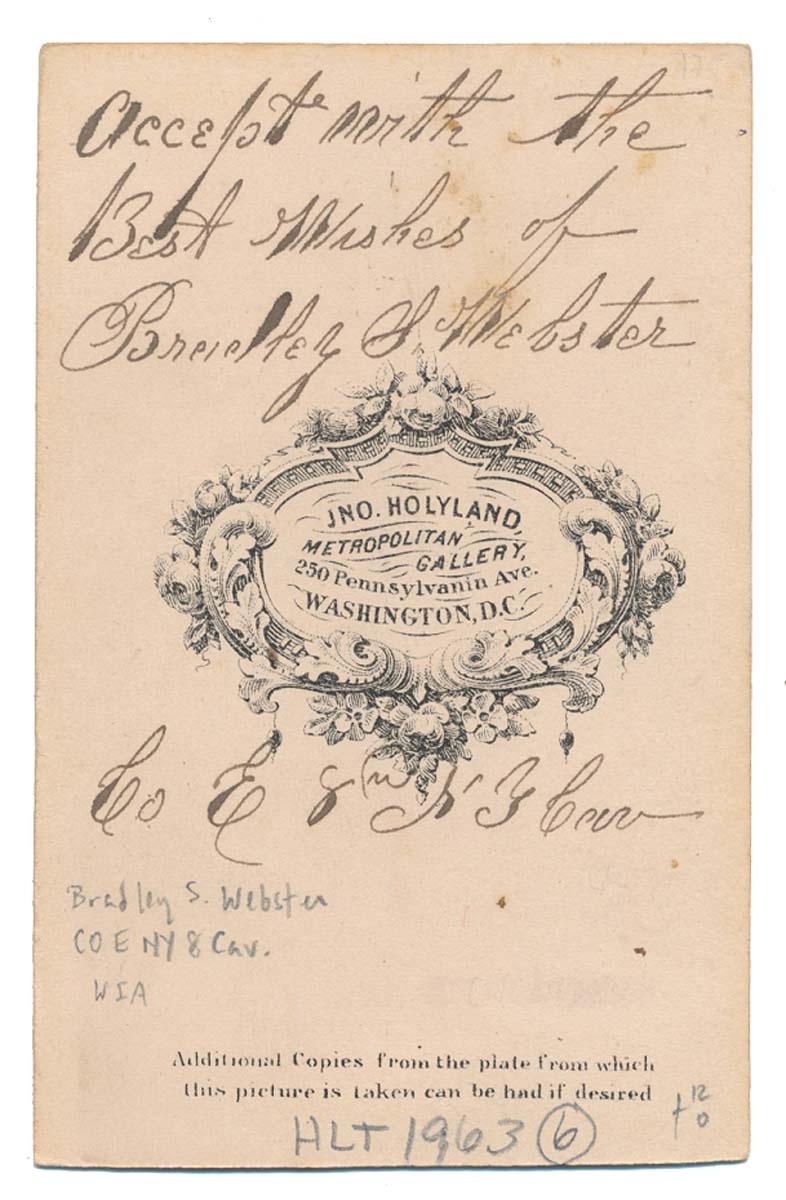 Accept with the
Best Wishes of
Bradley S. Webster
JNO. HOLYLAND,
METROPOLITAN
GALLERY,
250 Pennsylvania Ave.
WASHINGTON, D.C.
Co E 8th N Y Cav
Bradley S. Webster
CO E NY 8 Cav.
WIA
Additional Copies from the plate from which
this picture is taken can be had if desired
HLT 1963 6